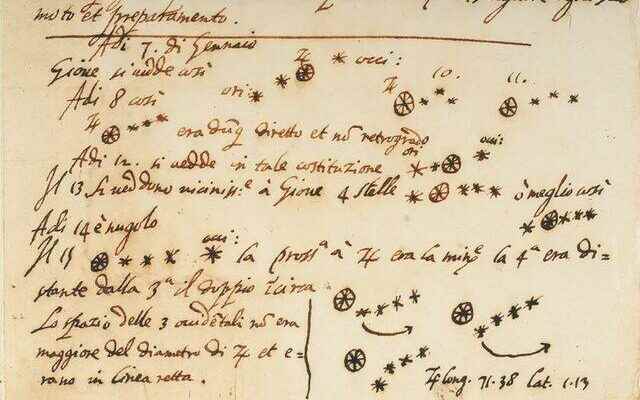 moto et preparamento.
Adi 7. di Gennaio
Gione si vedde così ori: ♃ occi:
Adi 8 così ♃ 10. 11.
♃ era dūq̃ diretto et nō retrogrado
Adi 12. si vedde in tale costituzione ori occi:
Il 13 si veddono viciniss.e à Gione 4 stelle ò meglio così
Adi 14 è nugolo
Il 15 occi: la pross.a à ♃ era la min.e la 4.a era di=
stante dalla 3.a il doppio ī circa
Lo spazio delle 3 occidētali nō era
maggiore del diametro di ♃ et e=
rano in linea retta.
♃ long. 71.38 lat. 1.13